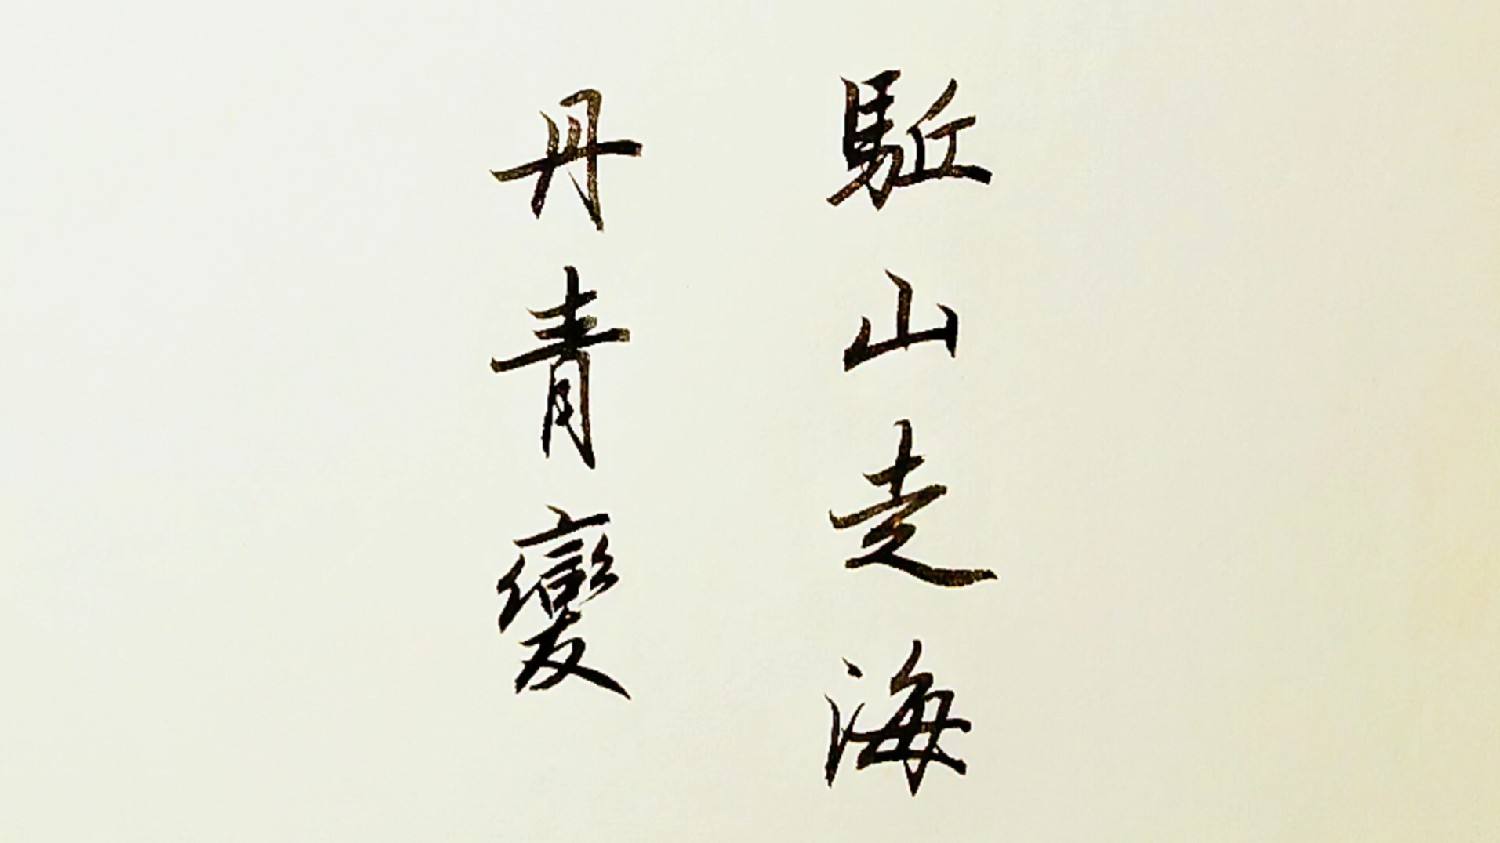 駈山走海
丹青變